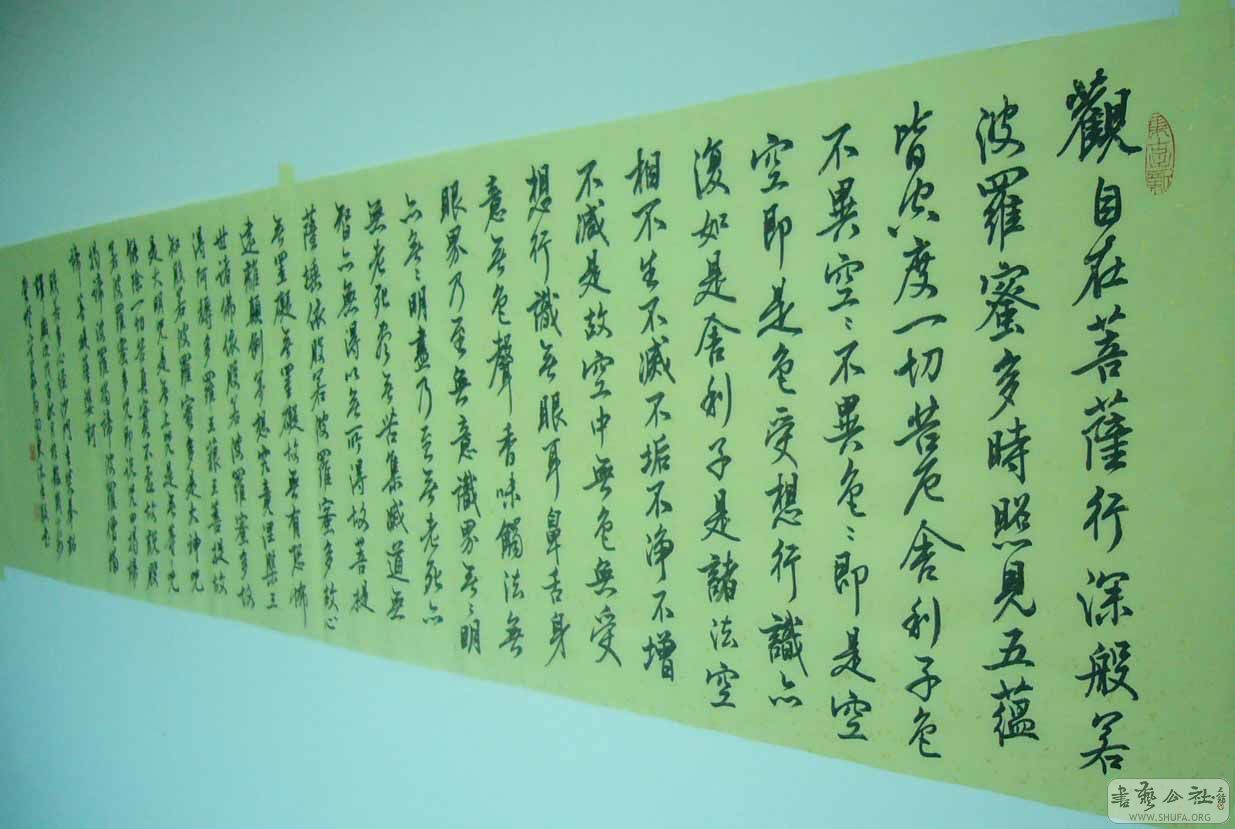 觀自在菩薩行深般若
波羅蜜多時照見五蘊
皆空度一切苦厄舍利子色
不異空〻不異色〻即是空
空即是色受想行識亦
復如是舍利子是諸法空
相不生不滅不垢不淨不增
不減是故空中無色無受
想行識無眼耳鼻舌身
意無色聲香味觸法無
眼界乃至無意識界無〻明
亦無〻明盡乃至無老死亦
無老死盡無苦集滅道無
智亦無得以無所得故菩提
薩埵依般若波羅蜜多故心
無罣礙無罣礙故無有恐怖
遠離顛倒夢想究竟涅槃三
世諸佛依般若波羅蜜多故
得阿耨多羅三藐三菩提故
知般若波羅蜜多是大神咒
是大明咒是無上咒是無等等咒
能除一切苦真實不虛故說般
若波羅蜜多咒即說咒曰揭諦
揭諦波羅揭諦波羅僧揭
諦菩提薩婆訶
書藝公社
WWW.SHUFA.ORG